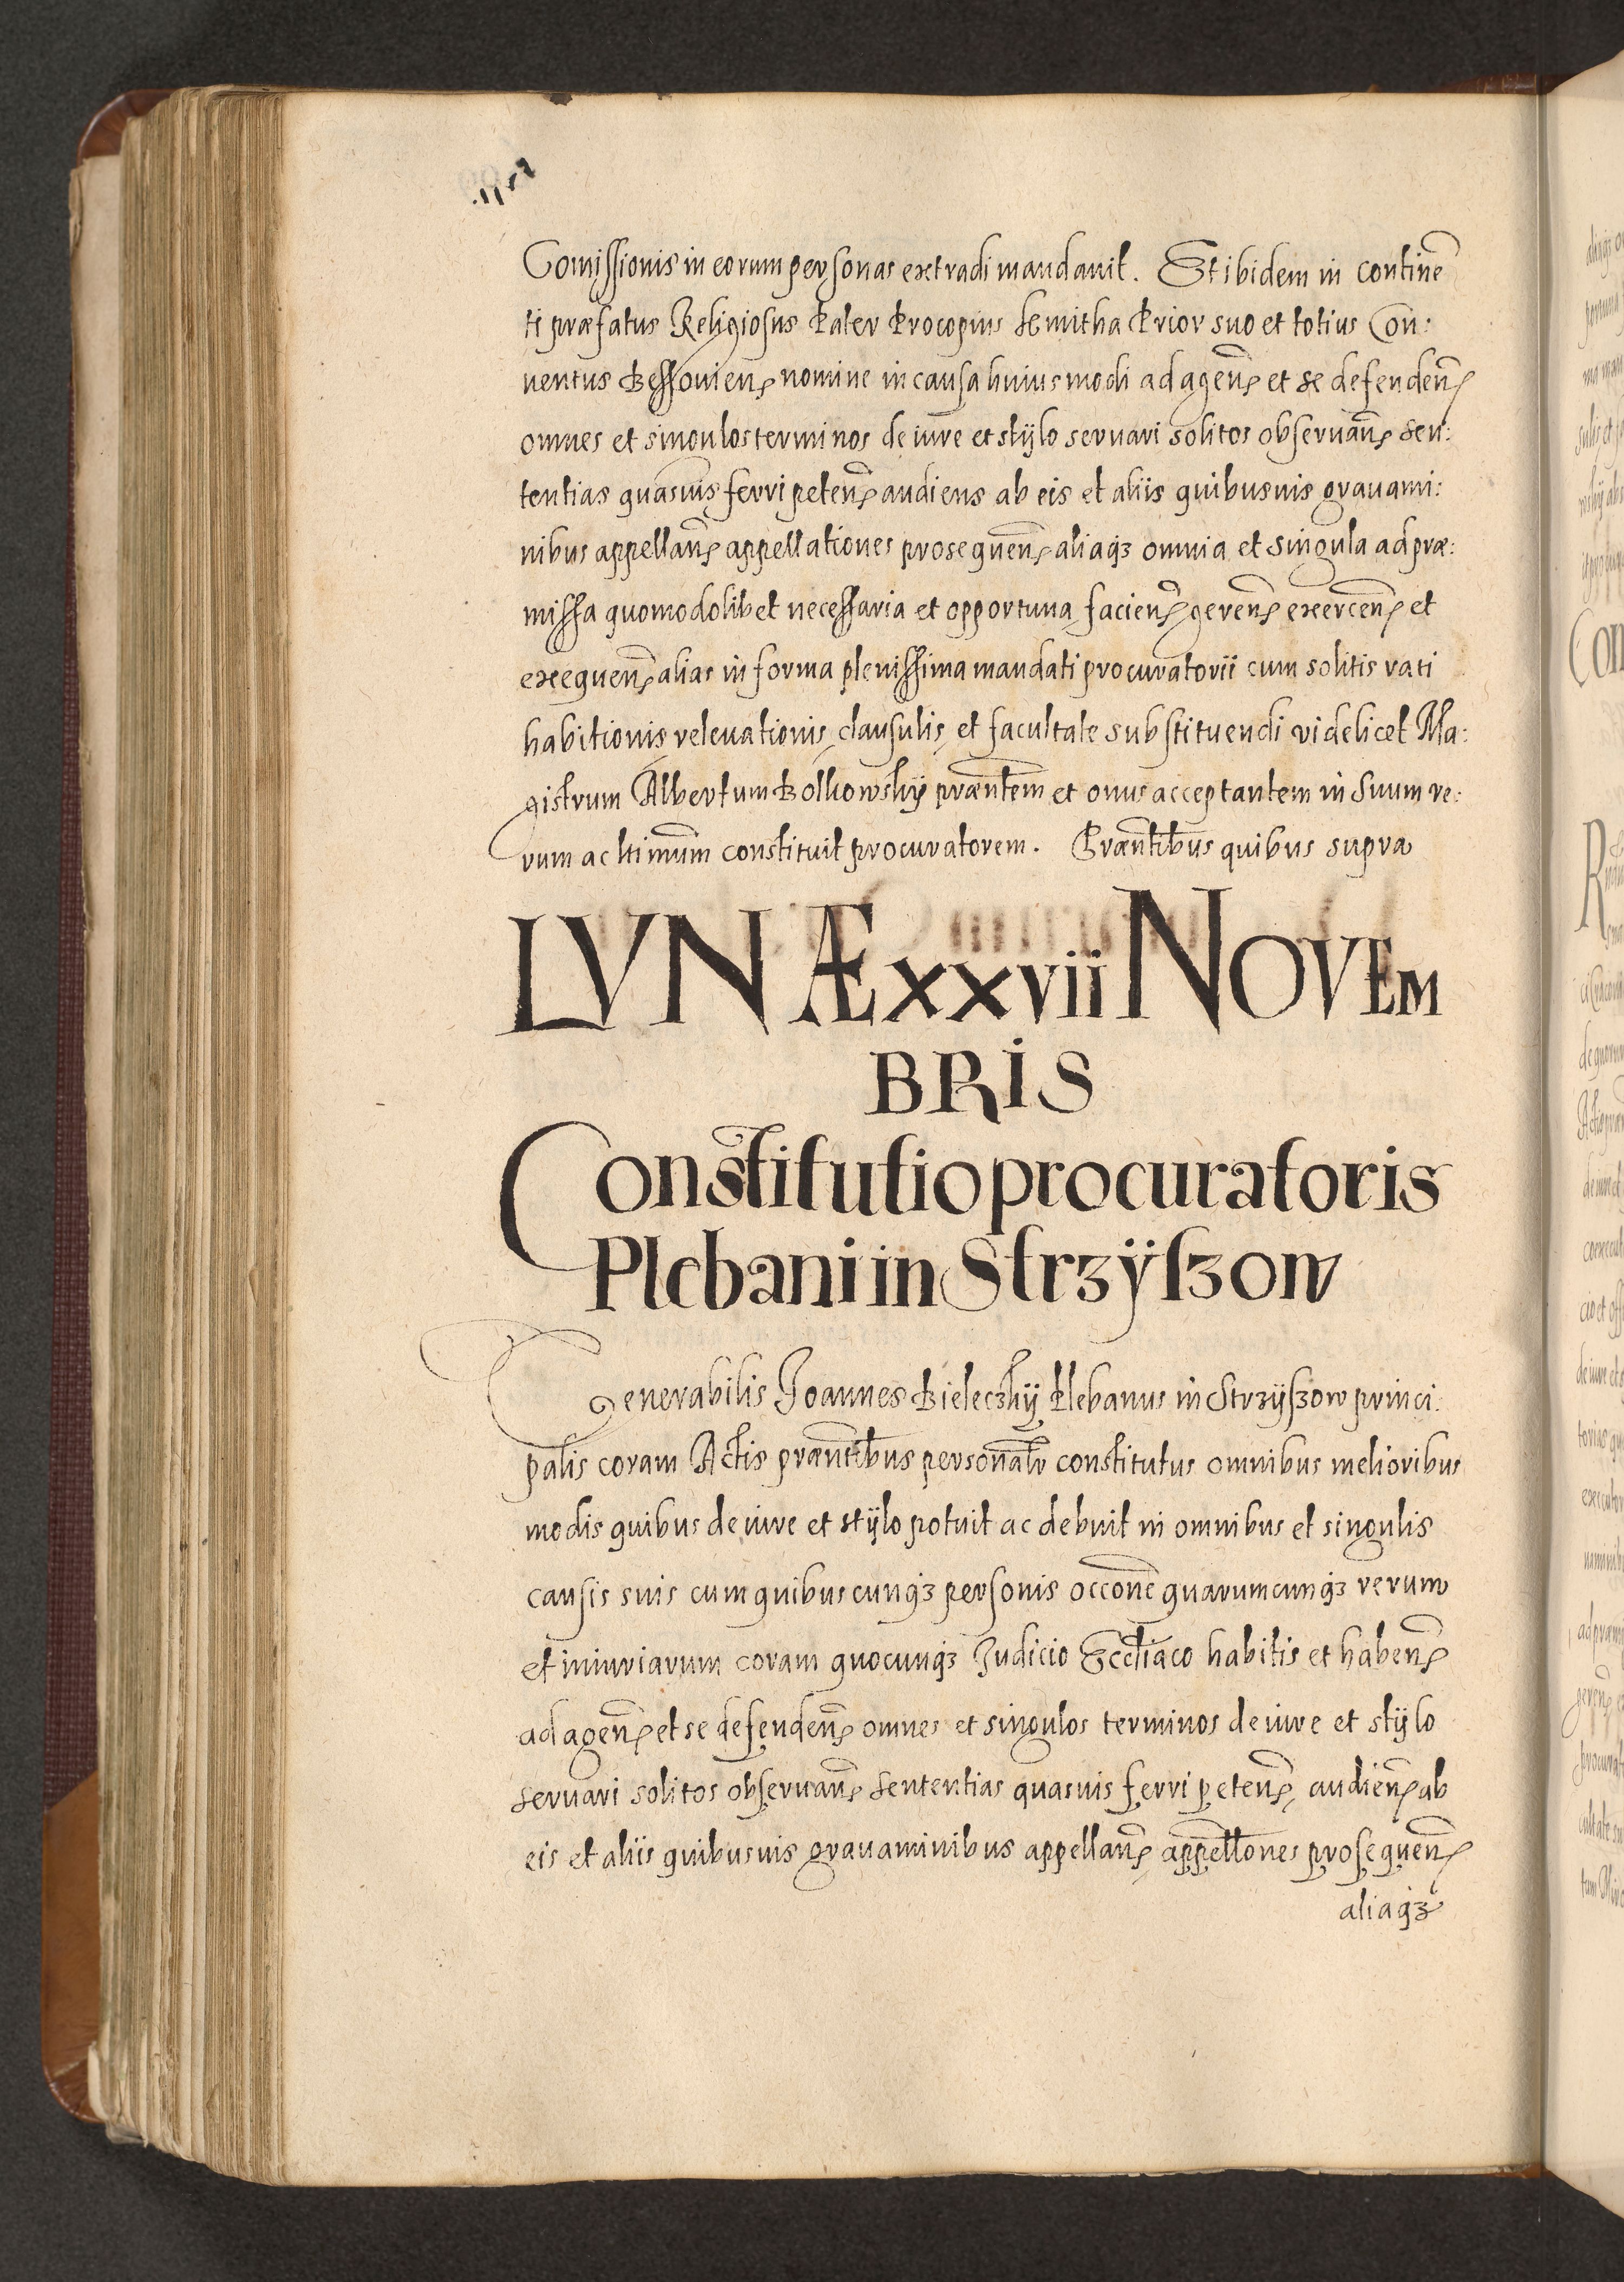 Comissionis in eorum personas extradi mandauit. Et ibidem in contine͂
ti præfatus Religiosus Pater Procopius Semitha Prior suo et totius Con:
uentus Beſſouien̄ꝭ nomine in causa huiusmodi ad agen̄ꝭ et se defenden̄ꝭ
omnes et singulos terminos de iure et stÿlo seruari solitos obseruan̄ꝭ sen:
tentias quasuis ferri peten̄ꝭ audiens ab eis et aliis quibusuis grauami:
nibus appellan̄ꝭ appellationes prosequen̄ꝭ aliaqȝ omnia et singula ad præ:
missa quomodolibet necessaria et opportuna facien̄ꝭ geren̄ꝭ exercen̄ꝭ et
exequen̄ꝭ alias in forma plenissima mandati procuratorii cum solitis rati
habitionis releuationis clausulis et facultate substituendi videlicet Ma:
gistrum Albertum Bolkowskÿ præn̄tem et onus acceptantem in suum ve:
rum ac ltimum̄ constituit procuratorem. Præn̄tibus quibus supra
LVNÆ xxvii NOVEM
BRIS
Constitutio procuratoris
Plebani in Strzÿszow
Venerabilis Joannes Bieleczkÿ Plebanus in Strzÿszow princi:
palis coram Actis præn̄tibus personal̄r constitutus omnibus melioribus
modis quibus de iure et stÿlo potuit ac debuit in omnibus et singulis
causis suis cum quibuscunqȝ personis occōne quarumcunqȝ rerum
et iniuriarum coram quocunqȝ Judicio Eccl̄iaco habitis et haben̄ꝭ
ad agen̄ꝭ et se defenden̄ꝭ omnes et singulos terminos de iure et stÿlo
seruari solitos obseruan̄ꝭ sententias quasuis ferri peten̄ꝭ audien̄ꝭ ab
eis et aliis quibusuis grauaminibus appellan̄ꝭ appell̄ones prosequen̄ꝭ
aliaqȝ